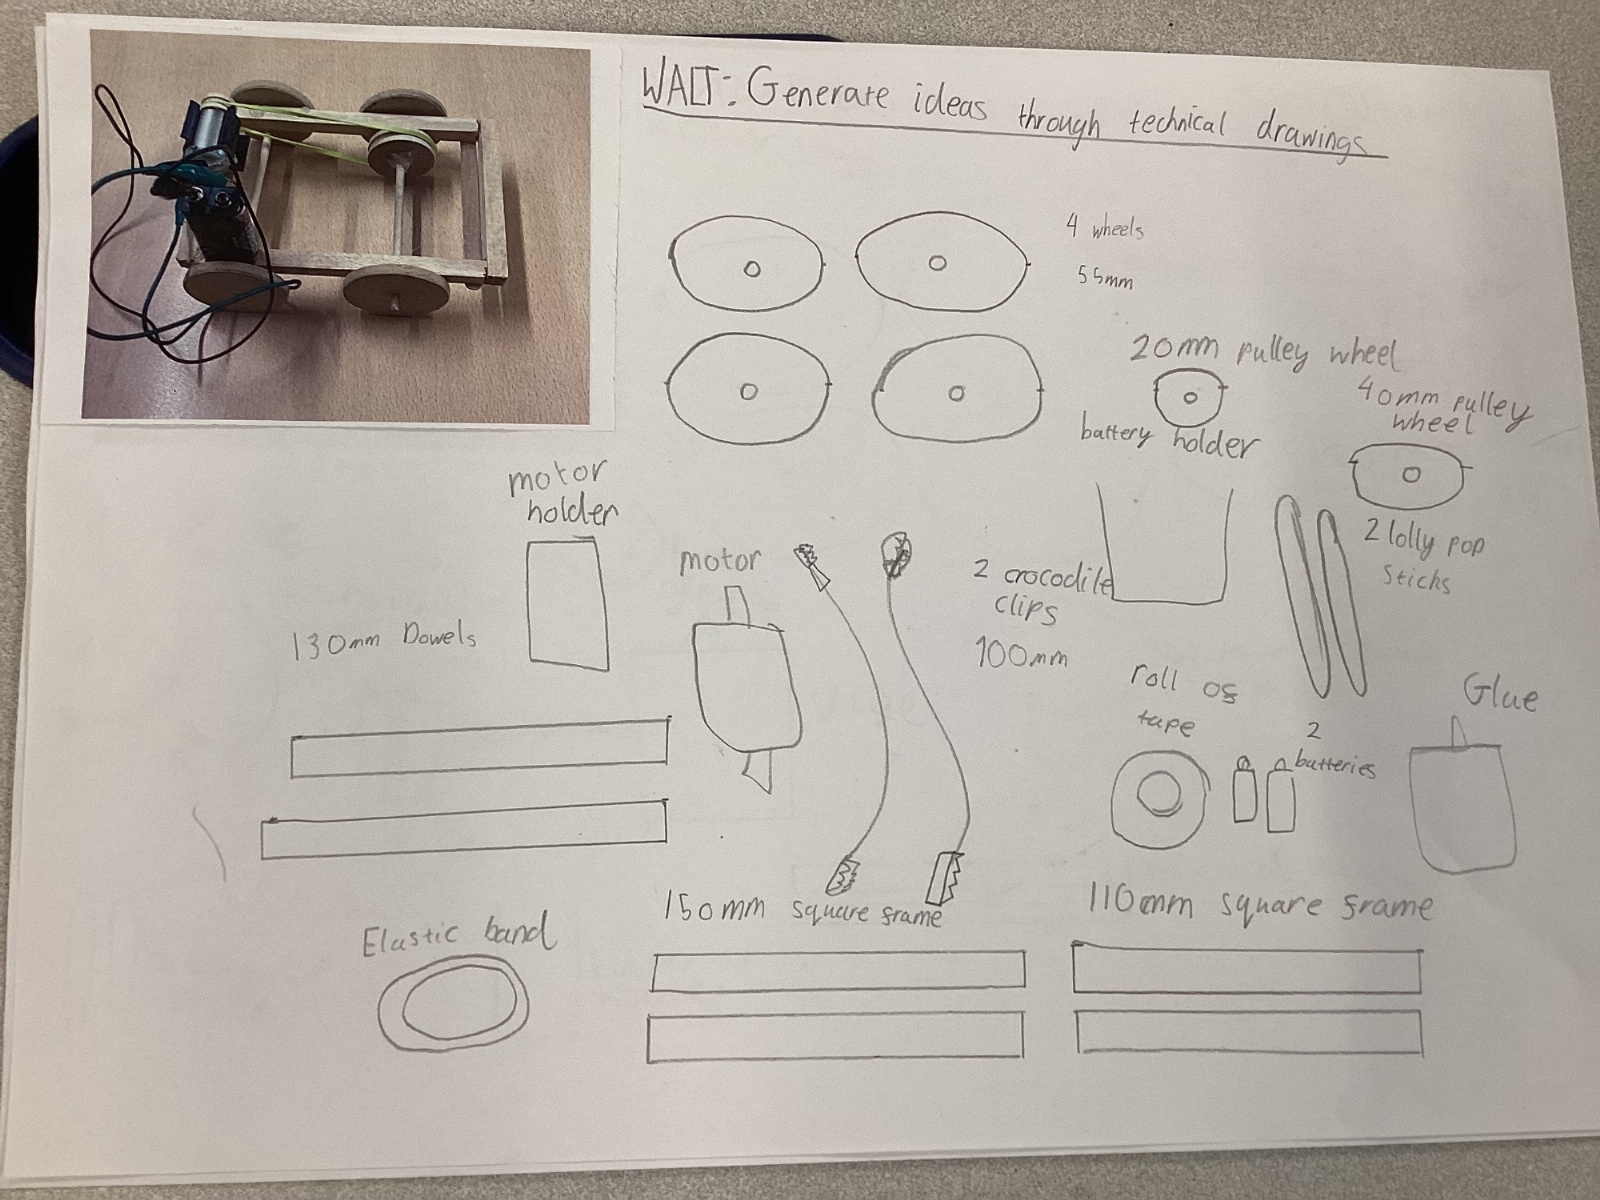 WALT: Generate ideas through technical drawings
4 wheels
55mm
20mm pulley wheel
40mm pulley
wheel
battery holder
motor
holder
motor
2 crocodile
clips
100mm
2 lolly pop
sticks
130mm Dowels
roll of
tape
2
batteries
Glue
150mm square frame
110mm square frame
Elastic band